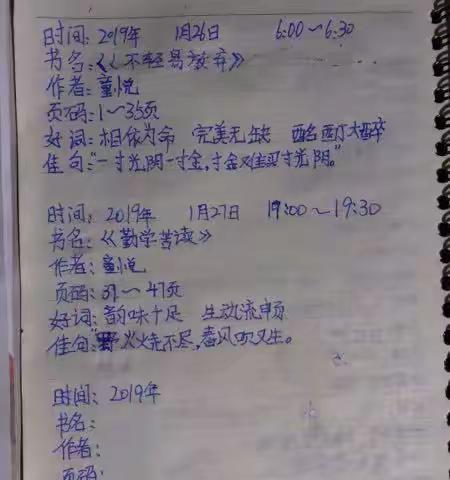 时间：2019年 1月26日 6:00～6:30
书名：《不轻易放弃》
作者：童悦
页码：1～35页
好词：相依为命 完美无缺 酩酊大醉
佳句："一寸光阴一寸金，寸金难买寸光阴。"
时间：2019年 1月27日 19:00～19:30
书名：《勤学苦读》
作者：童悦
页码：31～47页
好词：韵味十足 生动流畅
佳句："野火烧不尽，春风吹又生。
时间：2019年
书名：
作者：
页码：